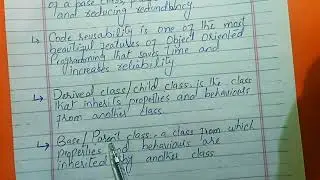 of a base class,
and reducing redundancy
↳ Code reusability is one of the most
beautiful features of Object Oriented
Programming that saves time and
increases reliability
↳ Derived class/child class is the class
that inherits properties and behaviours
from another class
↳ Base/Parent class, a class from which
properties and behaviours are
inherited by another class